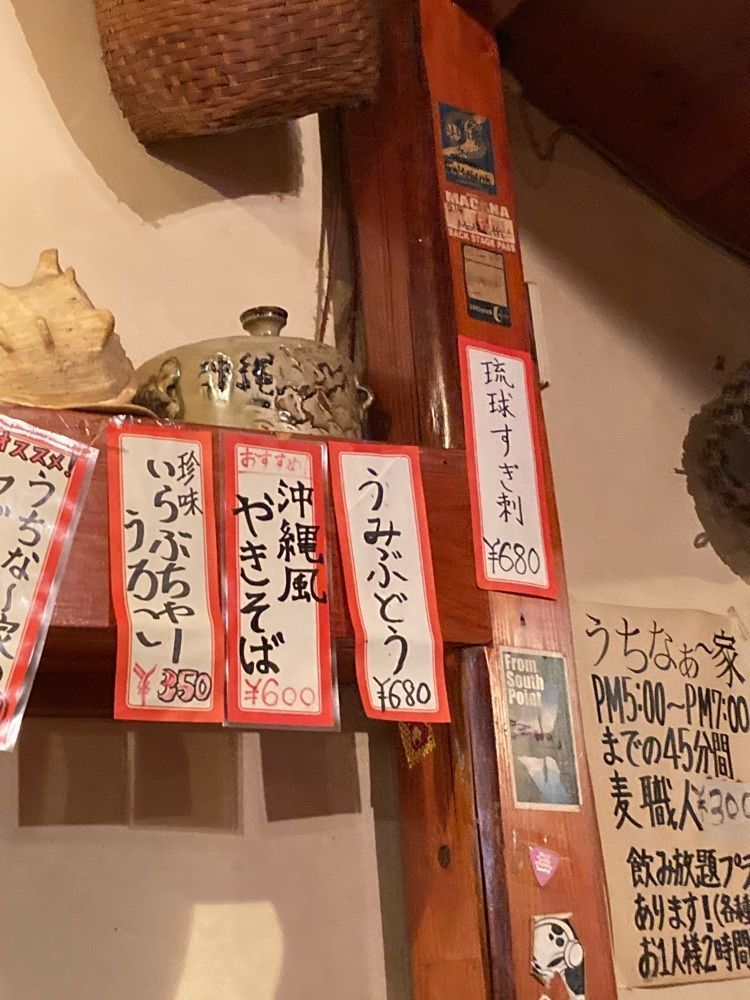 MACANA
BACK STAGE PASS
沖縄
琉球すぎ刺
¥680
オススメ!
うちな〜家
珍味
いらぶちゃー
うろ〜い
¥350
おすすめ!
沖縄風
やきそば
¥600
うみぶどう
¥680
From
South
Point
うちなぁ〜家
PM5:00〜PM7:00
までの45分間
麦職人¥300
飲み放題プラ
あります!(各種
お1人様2時間